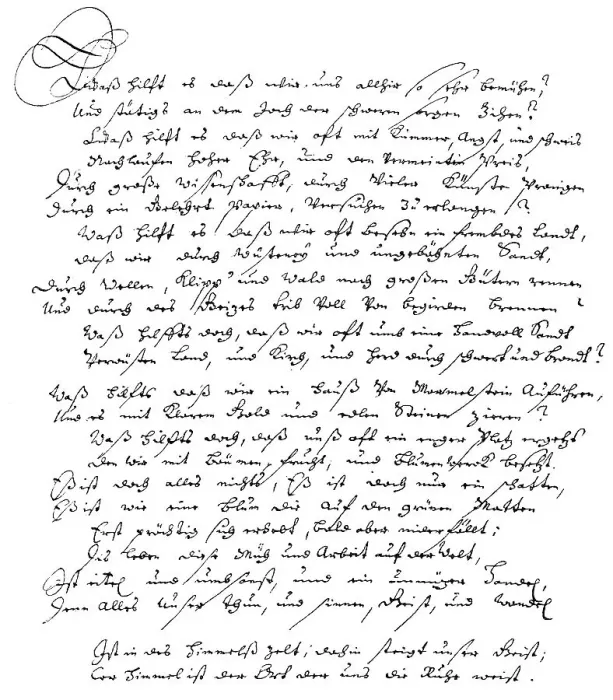 Waß hilft es daß wir uns allhir so sehr bemühen?
Und stätigs an dem Joch der schweren sorgen Zihen?
Waß hilft es daß wir oft mit Kummer, Angst, und schweis
Nachlaufen hoher Ehr, und den vermeinten Preis,
Durch große wissenschafft, durch Vieler Künste Prangen
Durch ein Belehrt papier, Versuchen Zu erlangen?
Waß hilft es daß wir oft besehn ein frembdes Landt,
daß wir durch Wüsteney und ungebähnten Sandt,
Durch Wellen, Klipp und Wald nach großen Gütern rennen
Und durch des Geizes trib Voll Von begirden brennen?
Waß hilffts doch, daß wir oft umb eine Handvoll Sandt
Verwüsten Land, und Kirch, und Herd durch schwert und brandt?
Waß hilfts daß wir ein Hauß Von Marmelstein Aufführen,
Und es mit Klarem Gold und edlen Steinen zieren?
Waß hilfts doch, daß unß oft ein enger Platz ergetzt
den wir mit Bäumen, frucht, und Blumenwerck besetzt.
Eß ist doch alles nichts, Eß ist doch nur ein schatten,
Eß ist wie eine Blum die auf den grünen Matten
Erst prächtig sich erhebt, bald aber niderfällt;
Dis leben diese Müh und Arbeit auf der Welt,
Ist eitel und umbsonst, und ein unnützer Handel,
Denn alles Unser Thun, und sinnen, Geist, und Wandel
Ist in des Himmelß zelt; dahin steigt unser Geist;
Der Himmel ist der Ort der uns die Ruhe weist.